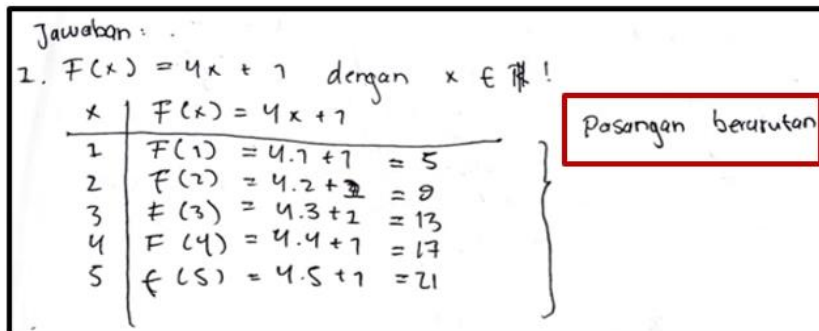 Jawaban :
1. F(x) = 4x + 1 dengan x ∈ R !
x | F(x) = 4x + 1
1 | F(1) = 4.1 + 1 = 5
2 | F(2) = 4.2 + 1 = 9
3 | F(3) = 4.3 + 1 = 13
4 | F(4) = 4.4 + 1 = 17
5 | f(5) = 4.5 + 1 = 21
Pasangan berurutan